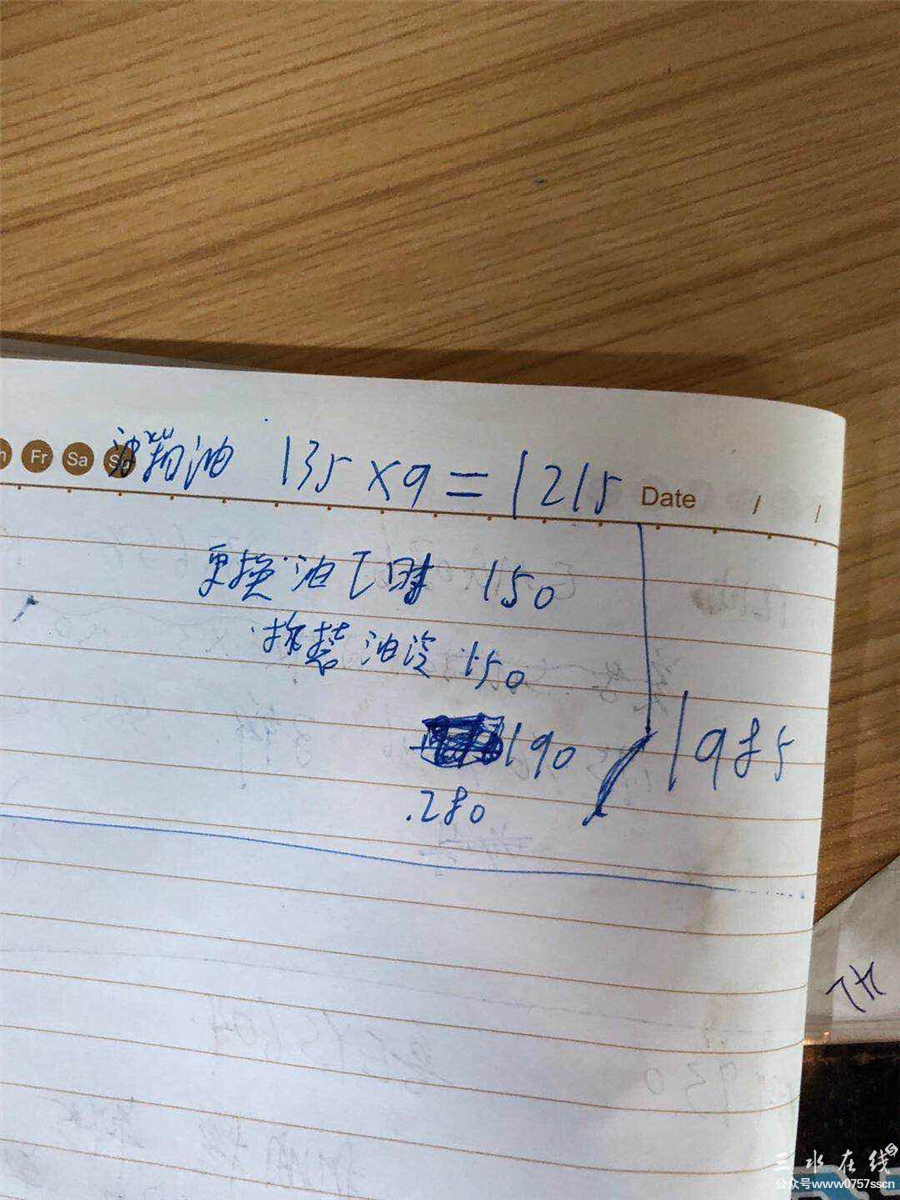 Fr Sa 油 135×9=1215 Date / /
更换油工时 150
拆装油冷 150
190
1985
.280
三水在线
公众号www0757sscn